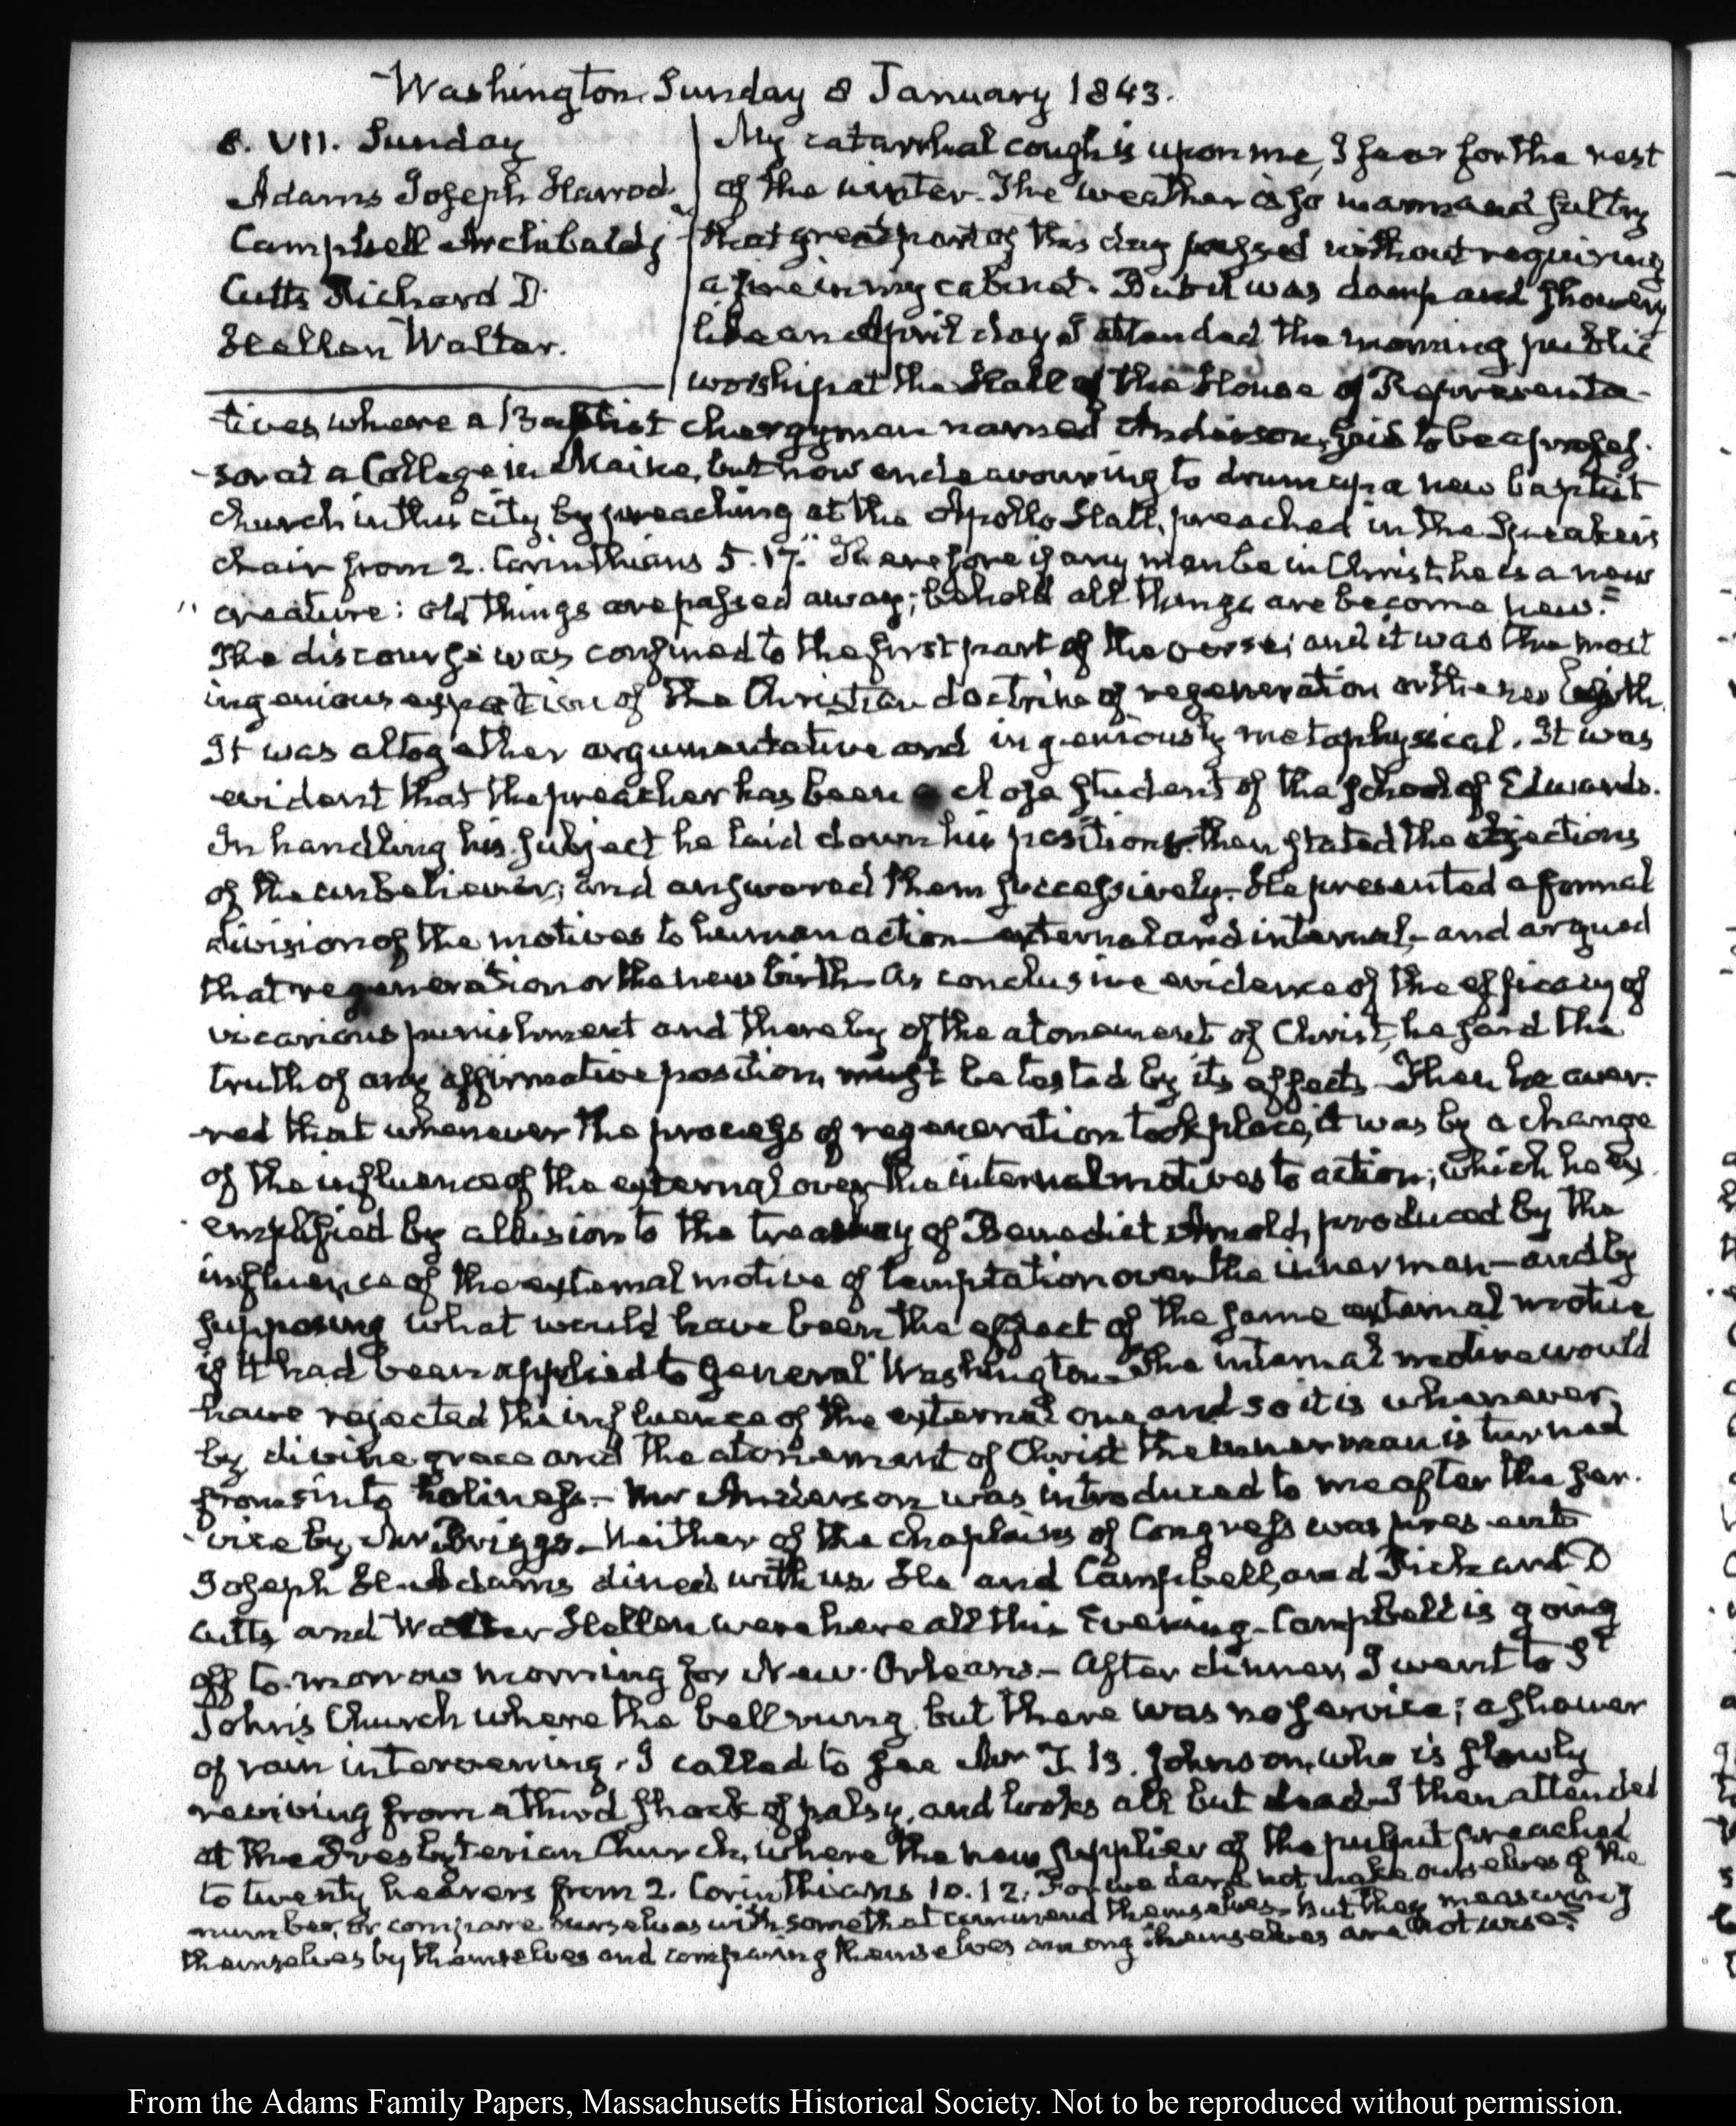 Washington Sunday 8 January 1843.
8. VII. Sunday
Adams Joseph Harrod
Campbell Archibald
Cutts Richard D
Hellen Walter.
My catarrhal cough is upon me, I fear for the rest
of the winter. The weather is so warm and sultry
that great part of this day passed without requiring
a fire in my cabinet. But it was damp and showery
like an April day I attended the morning public
worship at the Hall of the House of Representa-
tives where a Baptist clergyman named Anderson, said to be a profes-
sor at a College in Maine, but now endeavouring to drum up a new baptist
church in this city by preaching at the Apollo Hall, preached in the Speaker's
chair from 2. Corinthians 5.17. "Therefore if any man be in Christ he is a new
" creature: old things are passed away; behold all things are become new."
The discourse was confined to the first part of the verse; and it was the most
ingenious exposition of the Christian doctrine of regeneration or the new birth.
It was altogether argumentative and ingeniously metaphysical. It was
evident that the preacher has been a close student of the school of Edwards.
In handling his subject he laid down his positions then stated the objections
of the unbeliever; and answered them successively. He presented a formal
division of the motives to human action external and internal,- and argued
that regeneration or the new birth as conclusive evidence of the efficacy of
vicarious punishment and thereby of the atonement of Christ, he said the
truth of any affirmative position, must be tested by its effects. Then he aver-
red that whenever the process of regeneration took place, it was by a change
of the influence of the external over the internal motives to action; which he ex-
emplified by allusion to the treachery of Benedict Arnold, produced by the
influence of the external motive of temptation over the inner man- and by
supposing what would have been the effect of the same external motive
if it had been applied to General Washington. The internal motive would
have rejected the influence of the external one, and so it is whenever
by divine grace and the atonement of Christ the inner man is turned
from sin to holiness.- Mr Anderson was introduced to me after the ser-
vice by Mr Briggs. Neither of the chaplains of Congress was present
Joseph H. Adams dined with us. He and Campbell, and Richard D
Cutts and Walter Hellen were here all this Evening. Campbell is going
off to-morrow morning for New-Orleans.- After dinner, I went to St
John's Church where the bell rung, but there was no service; a shower
of rain intervening. I called to see Mr J. B. Johnson, who is slowly
reviving from a third shock of palsy, and looks all but dead. I then attended
at the Presbyterian Church, where the new supplier of the pulpit preached
to twenty hearers from 2. Corinthians 10.12. For we dare not make ourselves of the
number, or compare ourselves with some that commend themselves. But they measuring
themselves by themselves and comparing themselves among themselves are not wise."
From the Adams Family Papers, Massachusetts Historical Society. Not to be reproduced without permission.